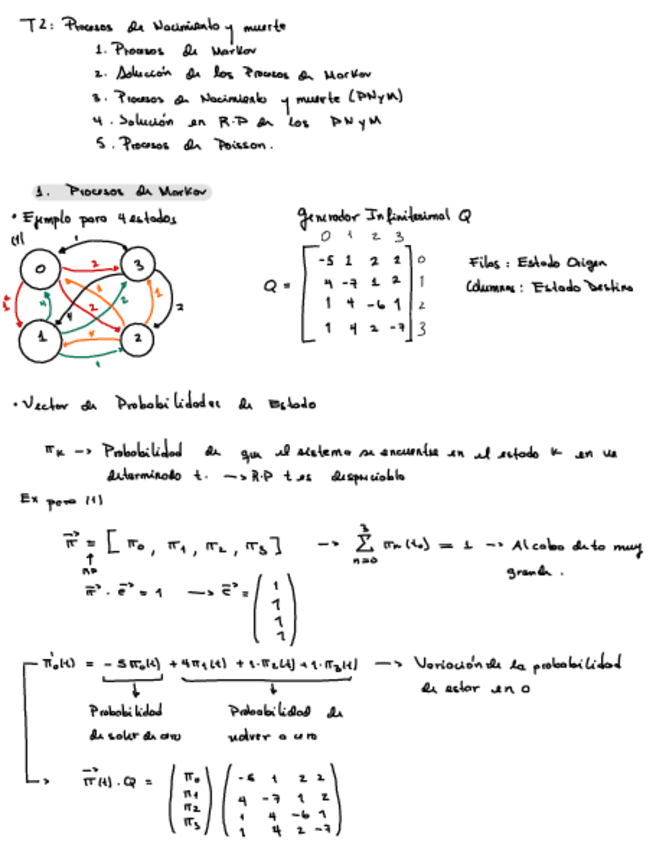 T2: Procesos de Nacimiento y muerte
1. Procesos de Markov
2. Solución de los Procesos de Markov
3. Procesos de Nacimiento y muerte (PNyM)
4. Solución en R.P de los PNyM
5. Procesos de Poisson.
1. Procesos de Markov
• Ejemplo para 4 estados
(1)
0 3 1 2
1 2 2 4 2 4 2 4 1 2 1
Generador Infinitesimal Q
0 1 2 3
Q =
-5 1 2 2 0
4 -7 1 2 1
1 4 -6 1 2
1 4 2 -7 3
Filas: Estado Origen
Columnas: Estado Destino
• Vector de Probabilidades de Estado
πk -> Probabilidad de que el sistema se encuentre en el estado k en un
determinado t. -> R.P t es despreciable
Ex para (1)
π⃗ = [π0, π1, π2, π3] -> Σ(n=0, 3) πn(t0) = 1 -> Al cabo de to muy
grande.
π⃗ · e⃗ = 1 -> e⃗ = (1 1 1 1)
π0'(t) = -5π0(t) + 4π1(t) + 1·π2(t) + 1·π3(t) -> Variación de la probabilidad
de estar en 0
Probabilidad Probabilidad de
de salir de cero volver a cero
π⃗(t)·Q =
π0 -5 1 2 2
π1 4 -7 1 2
π2 1 4 -6 1
π3 1 4 2 -7